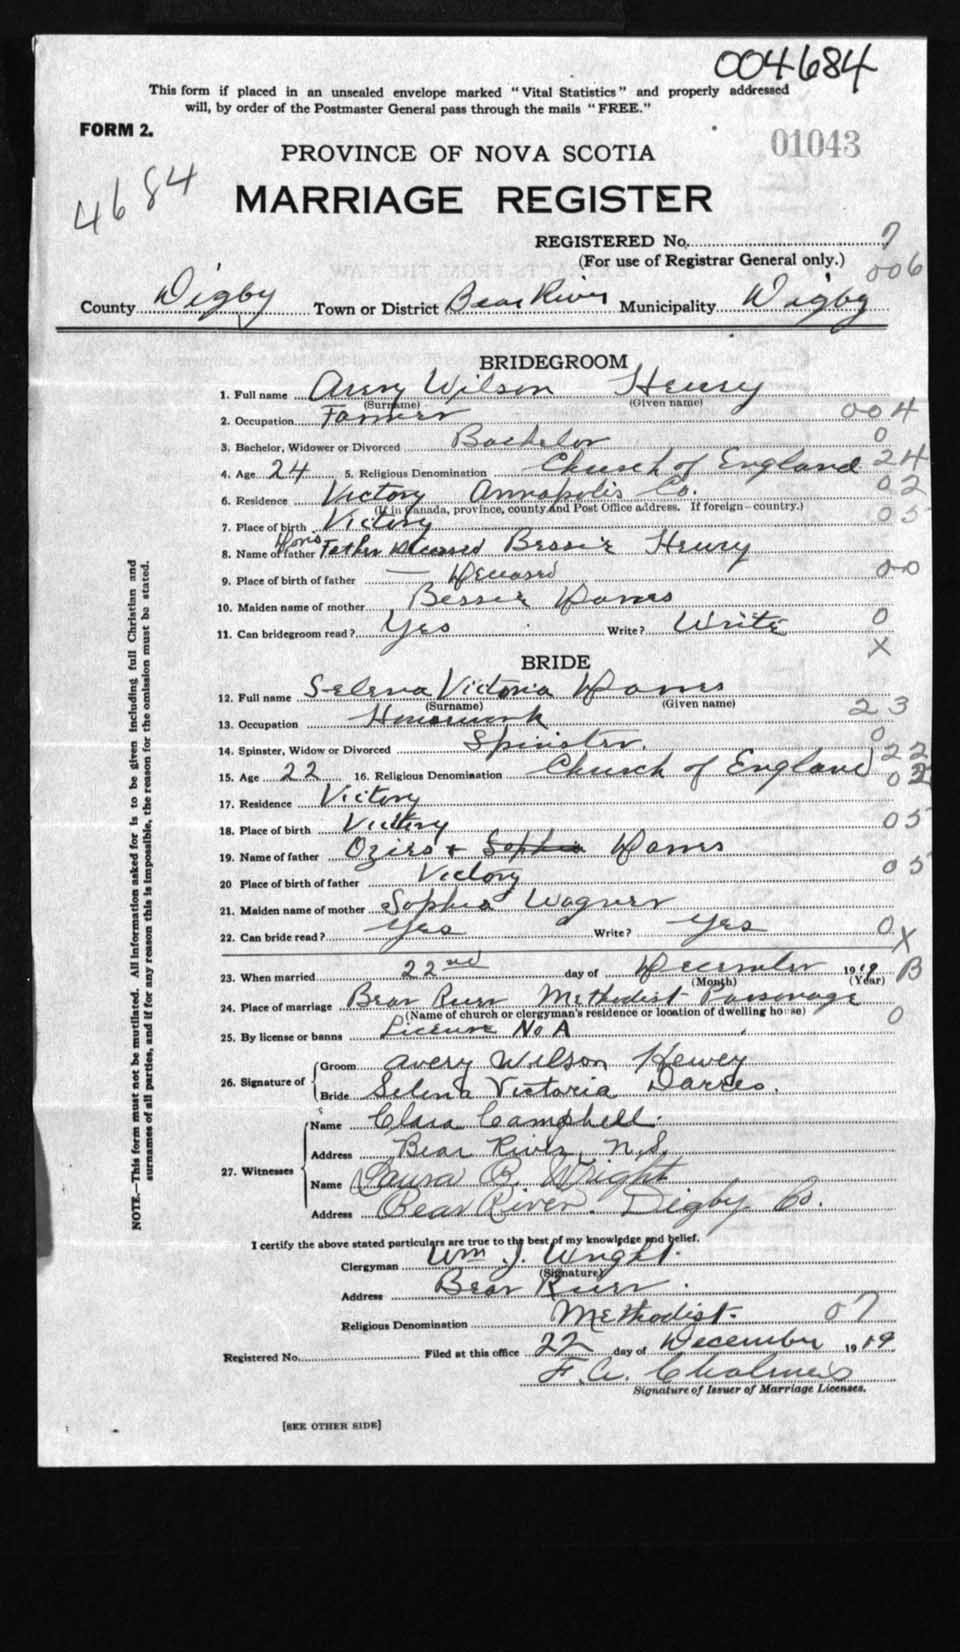 004684
This form if placed in an unsealed envelope marked "Vital Statistics" and properly addressed
will, by order of the Postmaster General pass through the mails "FREE."
FORM 2.
01043
4684
PROVINCE OF NOVA SCOTIA
MARRIAGE REGISTER
REGISTERED No. 7
(For use of Registrar General only.) 006
County Digby Town or District Bear River Municipality Digby
BRIDEGROOM
1. Full name Avery Wilson Henry
(Surname) (Given name)
2. Occupation Farmer 004
3. Bachelor, Widower or Divorced Bachelor 0
4. Age 24 5. Religious Denomination Church of England 24
6. Residence Victory Annapolis Co. 02
(If in Canada, province, county and Post Office address. If foreign—country.)
7. Place of birth Victory 05
8. Name of father Father deceased Bessie Henry
9. Place of birth of father — Deceased 00
10. Maiden name of mother Bessie
11. Can bridegroom read? Yes Write? Write 0
X
BRIDE
12. Full name Selena Victoria
(Surname) (Given name)
13. Occupation Housework 23
14. Spinster, Widow or Divorced Spinster. 0
15. Age 22 16. Religious Denomination Church of England 22
17. Residence Victory 02
18. Place of birth Victory 05
19. Name of father + Sophia
20 Place of birth of father Victory 05
21. Maiden name of mother Sophia Wagner
22. Can bride read? Yes Write? Yes 0
X
23. When married 22nd day of December 1919 B
(Month) (Year)
24. Place of marriage Bear River Methodist Parsonage
(Name of church or clergyman's residence or location of dwelling house) 0
25. By license or banns License No A
26. Signature of Groom Avery Wilson
Bride Selena Victoria
27. Witnesses Name Clara Campbell.
Address Bear River, N.S.
Name Laura B. Wright
Address Bear River. Digby Co.
I certify the above stated particulars are true to the best of my knowledge and belief.
Clergyman Wm J. Wright.
(Signature)
Address Bear River.
Religious Denomination Methodist. 07
Registered No. Filed at this office 22 day of December 1919
F. A.
Signature of Issuer of Marriage Licenses.
[SEE OTHER SIDE]
NOTE.—This form must not be mutilated. All information asked for is to be given including full Christian and
surnames of all parties, and if for any reason this is impossible, the reason for the omission must be stated.